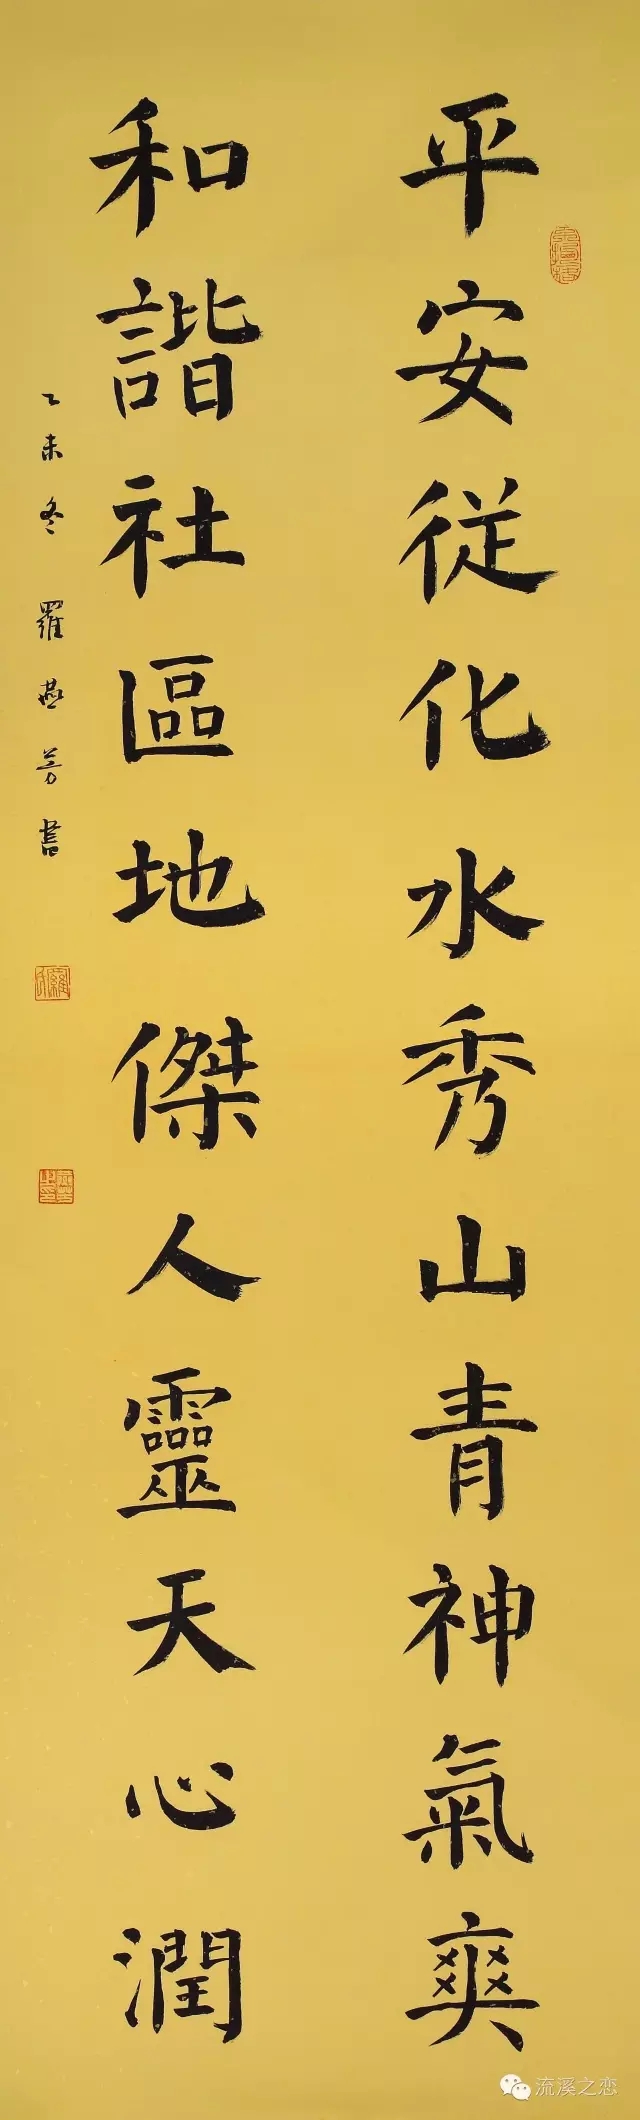 平安従化水秀山青神氣爽
和諧社區地傑人靈天心潤
乙未冬羅燕芳書
流溪之恋